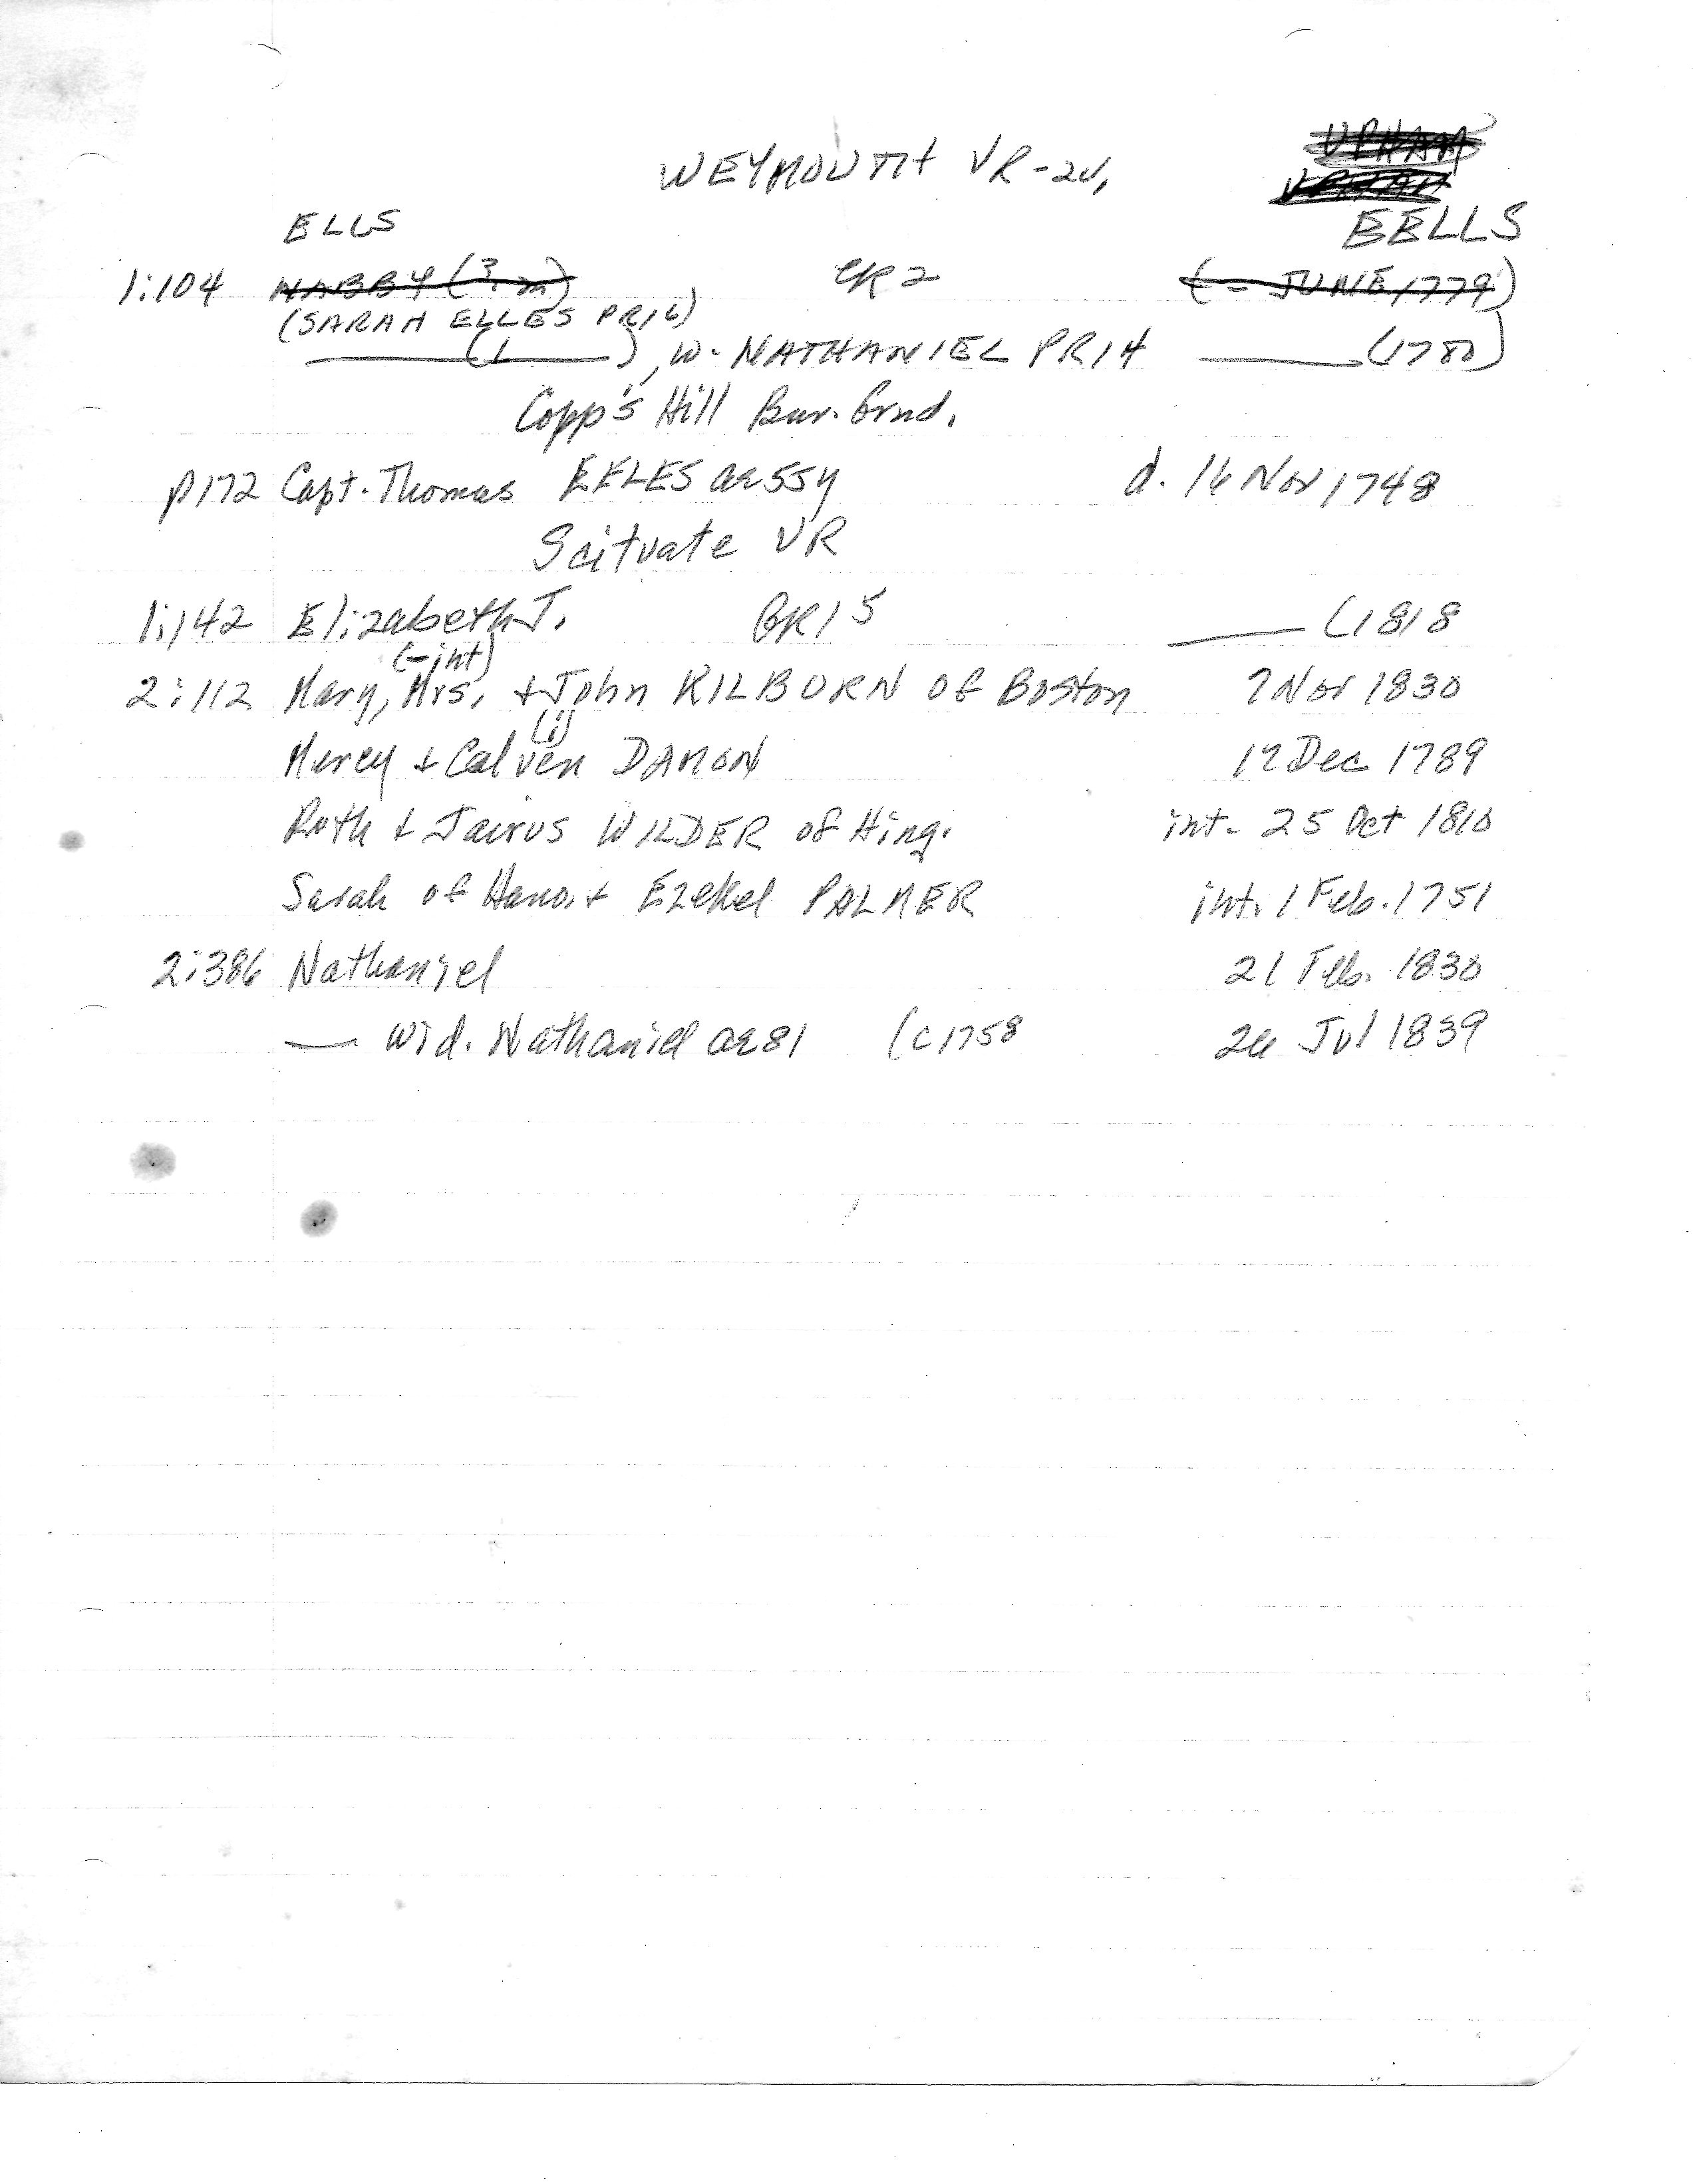 WEYMOUTH VR-2v,
UPHAM
UPHAM
EELLS
ELLS
1:104 NABBY (? m) GR2 (- JUNE 1779)
(SARAH ELLES PR16)
(1 ), w. NATHANIEL PR14 (1780)
Copp's Hill Bur. Grnd.
p172 Capt. Thomas EELES ae 55y d. 16 Nov 1748
Scituate VR
1:142 Elizabeth J. GR15 (1818
(-int)
2:112 Mary, Mrs. + John KILBURN of Boston 7 Nov 1830
(i)
Mercy + Calven DAMON 17 Dec 1789
Ruth + Jairus WILDER of Hing. int. 25 Oct 1810
Sarah of Hano. + Ezekel PALMER int. 1 Feb. 1751
2:386 Nathaniel 21 Feb. 1830
— wid. Nathaniel ae81 (c1758 26 Jul 1839